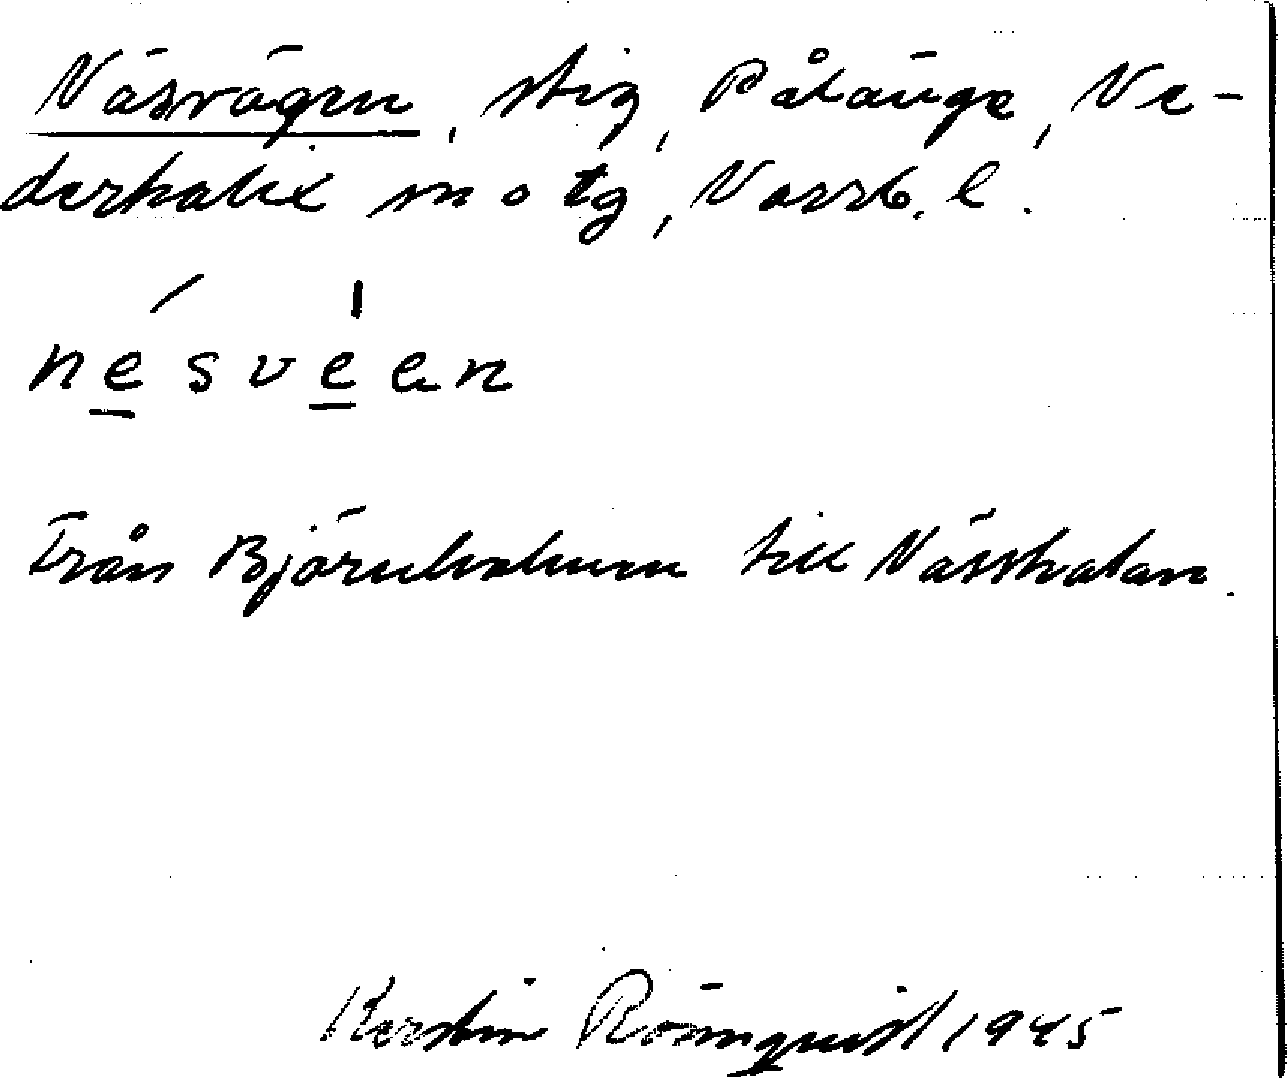 Näsvägen, stig, Pålänge, Ne-
derkalix sn o tg, Norrb. l.
nésvéen
Från Björnholmen till Nässkatan.
Kerstin Rönnquist, 1945